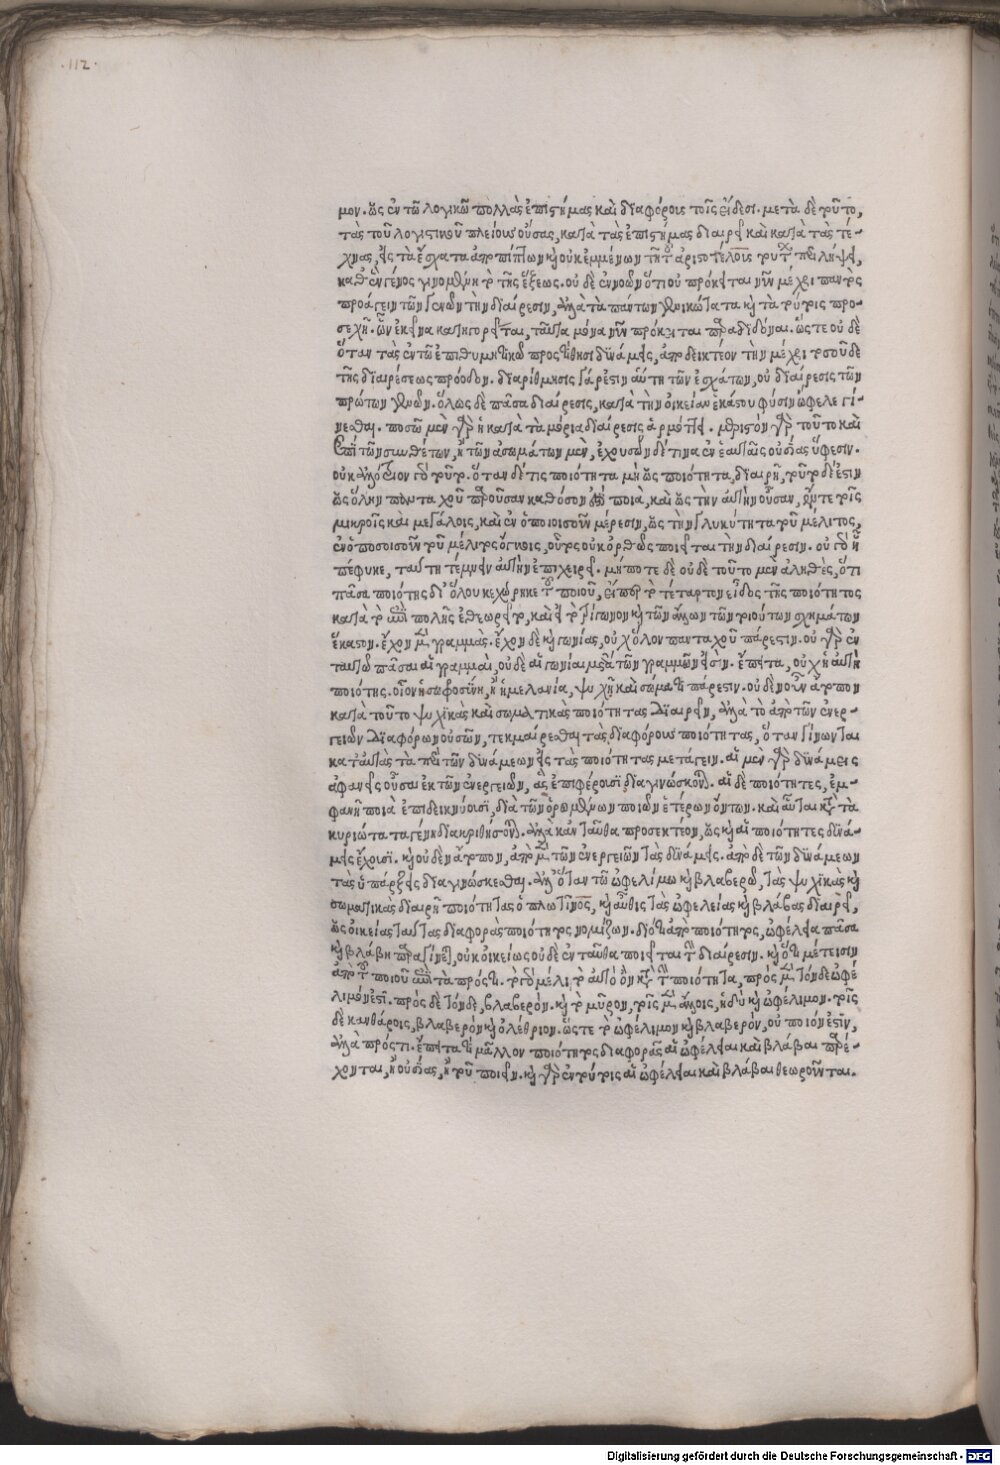 ·112·
μον. ὡς ἐν τῶ λογικῶ πολλὰς ἐπιστήμας καὶ διαφόροις τοῖς εἴδεσι. μετὰ δὲ τοῦτο,
τὰς τοῦ λογιστικοῦ πλείους οὔσας, κατὰ τὰς ἐπιστήμας διαιρεῖ καὶ κατὰ τὰς τέ-
χνας, εἰς τὰ ἔσχατα ἀποπίπτων κὴ οὐκ ἐμμένων τῆ τοῦ ἀριστοτέλους
καθ' ἓν γένος γινομένη τὸ τῆς ἕξεως. οὐδὲ ἐννοῶν ὅτι οὐ πρόκειται νῦν μέχρι παντὸς
προάγειν τῶν γενῶν τὴν διαίρεσιν, ἀλλὰ τὰ πάντων γενικώτατα κὴ τὰ τούτοις προ-
σεχῆ. ὧν ἐκεῖνα κατηγορεῖται, ταῦτα μόνα νῦν πρόκειται παραδιδόναι. ὥστε οὐδὲ
ὅταν τὰς ἐν τῶ ἐπιθυμητικῶ προστίθησι δυνάμεις, ἀποδεικτέον τὴν μέχρι τοσοῦδε
τῆς διαιρέσεως πρόοδον. διαρίθμησις γάρ ἐστιν αὕτη τῶν ἐσχάτων, οὐ διαίρεσις τῶν
πρώτων γενῶν. ὅλως δὲ πᾶσα διαίρεσις, κατὰ τὴν οἰκείαν ἑκάστου φύσιν ὤφελε γί-
νεσθαι. ποσῶ μὲν γὰρ ἡ κατὰ τὰ μόρια διαίρεσις ἁρμόττει. μεριστὸν γὰρ τοῦτο καὶ
ἐπὶ τῶν συνθέτων, ἢ τῶν ἀσωμάτων μὲν, ἐχουσῶν δέ τινα ἐν ἑαυταῖς οὐσίας ὕφεσιν.
οὐκ ἀναίτιον γὰρ τοῦτο. ὅταν δέ τις ποιότητα μὴ ὡς ποιότητα, διαιρῆ, τοῦτο δέ ἐστιν
ὡς ὅλην πανταχοῦ παροῦσαν καθόσον ποιὰ, καὶ ὡς τὴν αὐτὴν οὖσαν, ἔν τε τοῖς
μικροῖς καὶ μεγάλοις, καὶ ἐν ὁποιοισοῦν μέρεσιν, ὡς τὴν γλυκύτητα τοῦ μέλιτος,
ἐν ὁποσοισοῦν τοῦ μέλιτος ὄγκοις, οὗτος οὐκ ὀρθῶς ποιεῖται τὴν διαίρεσιν. οὐ γὰρ ἧ
πέφυκε, ταύτη τέμνειν αὐτὴν ἐπιχειρεῖ. μήποτε δὲ οὐδὲ τοῦτο μὲν ἀληθὲς, ὅτι
πᾶσα ποιότης δι' ὅλου κεχώρηκε τοῦ ποιοῦ, εἴπερ τὸ τέταρτον εἶδος τῆς ποιότητος
κατὰ τὸ ἐπιπολῆς ἐθεωρεῖτο, καὶ εἰ τὸ τρίγωνον κὴ τῶν ἄλλων τῶν τοιούτων σχημάτων
ἕκαστον. ἔχον μὲν γραμμὰς. ἔχον δὲ κὴ γωνίας, οὐχ ὅλον πανταχοῦ πάρεστιν. οὐ γὰρ ἐν
ταυτῶ πᾶσαι αἱ γραμμαὶ, οὐδὲ αἱ γωνίαι μετὰ τῶν γραμμῶν εἰσιν. ἔπειτα, οὐχ ἡ αὐτὴ
ποιότης. οἷον ἡ σωφροσύνη, ἢ ἡ μελανία, ψυχῆ καὶ σώματι πάρεστιν. οὐδὲν οὖν ἄτοπον
κατὰ τοῦτο ψυχικὰς καὶ σωματικὰς ποιότητας διαιρεῖν, ἀλλὰ τὸ ἀπὸ τῶν ἐνερ-
γειῶν διαφόρων οὐσῶν, τεκμαίρεσθαι τὰς διαφόρους ποιότητας, ὅταν γίνωνται
κατ' αὐτὰς τὰ περὶ τῶν δυνάμεων εἰς τὰς ποιότητας μετάγειν. αἱ μὲν γὰρ δυνάμεις
ἀφανεῖς οὖσαι ἐκ τῶν ἐνεργειῶν, ἃς ἐπιφέρουσι διαγινώσκονται. αἱ δὲ ποιότητες, ἐμ-
φανῆ ποιὰ ἐπιδεικνύουσι, διὰ τῶν ὁρωμένων ποιῶν ἑτέρων ὄντων. καὶ αὗται κατὰ τὰ
κυριώτατα γένη διακριθήσονται. ἀλλὰ κἀνταῦθα προσεκτέον, ὡς κὴ αἱ ποιότητες δυνά-
μεις ἔχουσι. κὴ οὐδὲν ἄτοπον, ἀπὸ μὲν τῶν ἐνεργειῶν τὰς δυνάμεις. ἀπὸ δὲ τῶν δυνάμεων
τὰς ὑπάρξεις διαγινώσκεσθαι. ἀλλ' ὅταν τῶ ὠφελίμω κὴ βλαβερῶ, τὰς ψυχικὰς κὴ
σωματικὰς διαιρῆ ποιότητας ὁ πλωτῖνος, κὴ αὖθις τὰς ὠφελείας κὴ βλάβας διαιρεῖ,
ὡς οἰκείας ταύτας διαφορὰς ποιότητος νομίζων. διότι ἀπὸ ποιότητος, ὠφέλεια πᾶσα
κὴ βλάβη παραγίνεται, οὐκ οἰκείως οὐδὲ ἐνταῦθα ποιεῖται τὴν διαίρεσιν. κὴ ὅτι μέτεισιν
ἀπὸ τοῦ ποιοῦ ἐπὶ τὰ πρός τι. τὸ γὰρ μέλι τὸ αὐτὸ ὂν κατὰ τὴν ποιότητα, πρὸς μὲν τόνδε ὠφέ-
λιμόν ἐστι. πρὸς δὲ τόνδε, βλαβερόν. κὴ τὸ μῦρον, τοῖς μὲν ἄλλοις, ἡδὺ κὴ ὠφέλιμον. τοῖς
δὲ κανθάροις, βλαβερὸν κὴ ὀλέθριον. ὥστε τὸ ὠφέλιμον κὴ βλαβερὸν, οὐ ποιόν ἐστιν,
ἀλλὰ πρός τι. ἔπειτα τί μᾶλλον ποιότητος διαφορὰς αἱ ὠφέλειαι καὶ βλάβαι παρέ-
χονται, ἢ οὐσίας, ἢ τοῦ ποιεῖν. κὴ γὰρ ἐν τούτοις αἱ ὠφέλειαι καὶ βλάβαι θεωροῦνται.
Digitalisierung gefördert durch die Deutsche Forschungsgemeinschaft - DFG